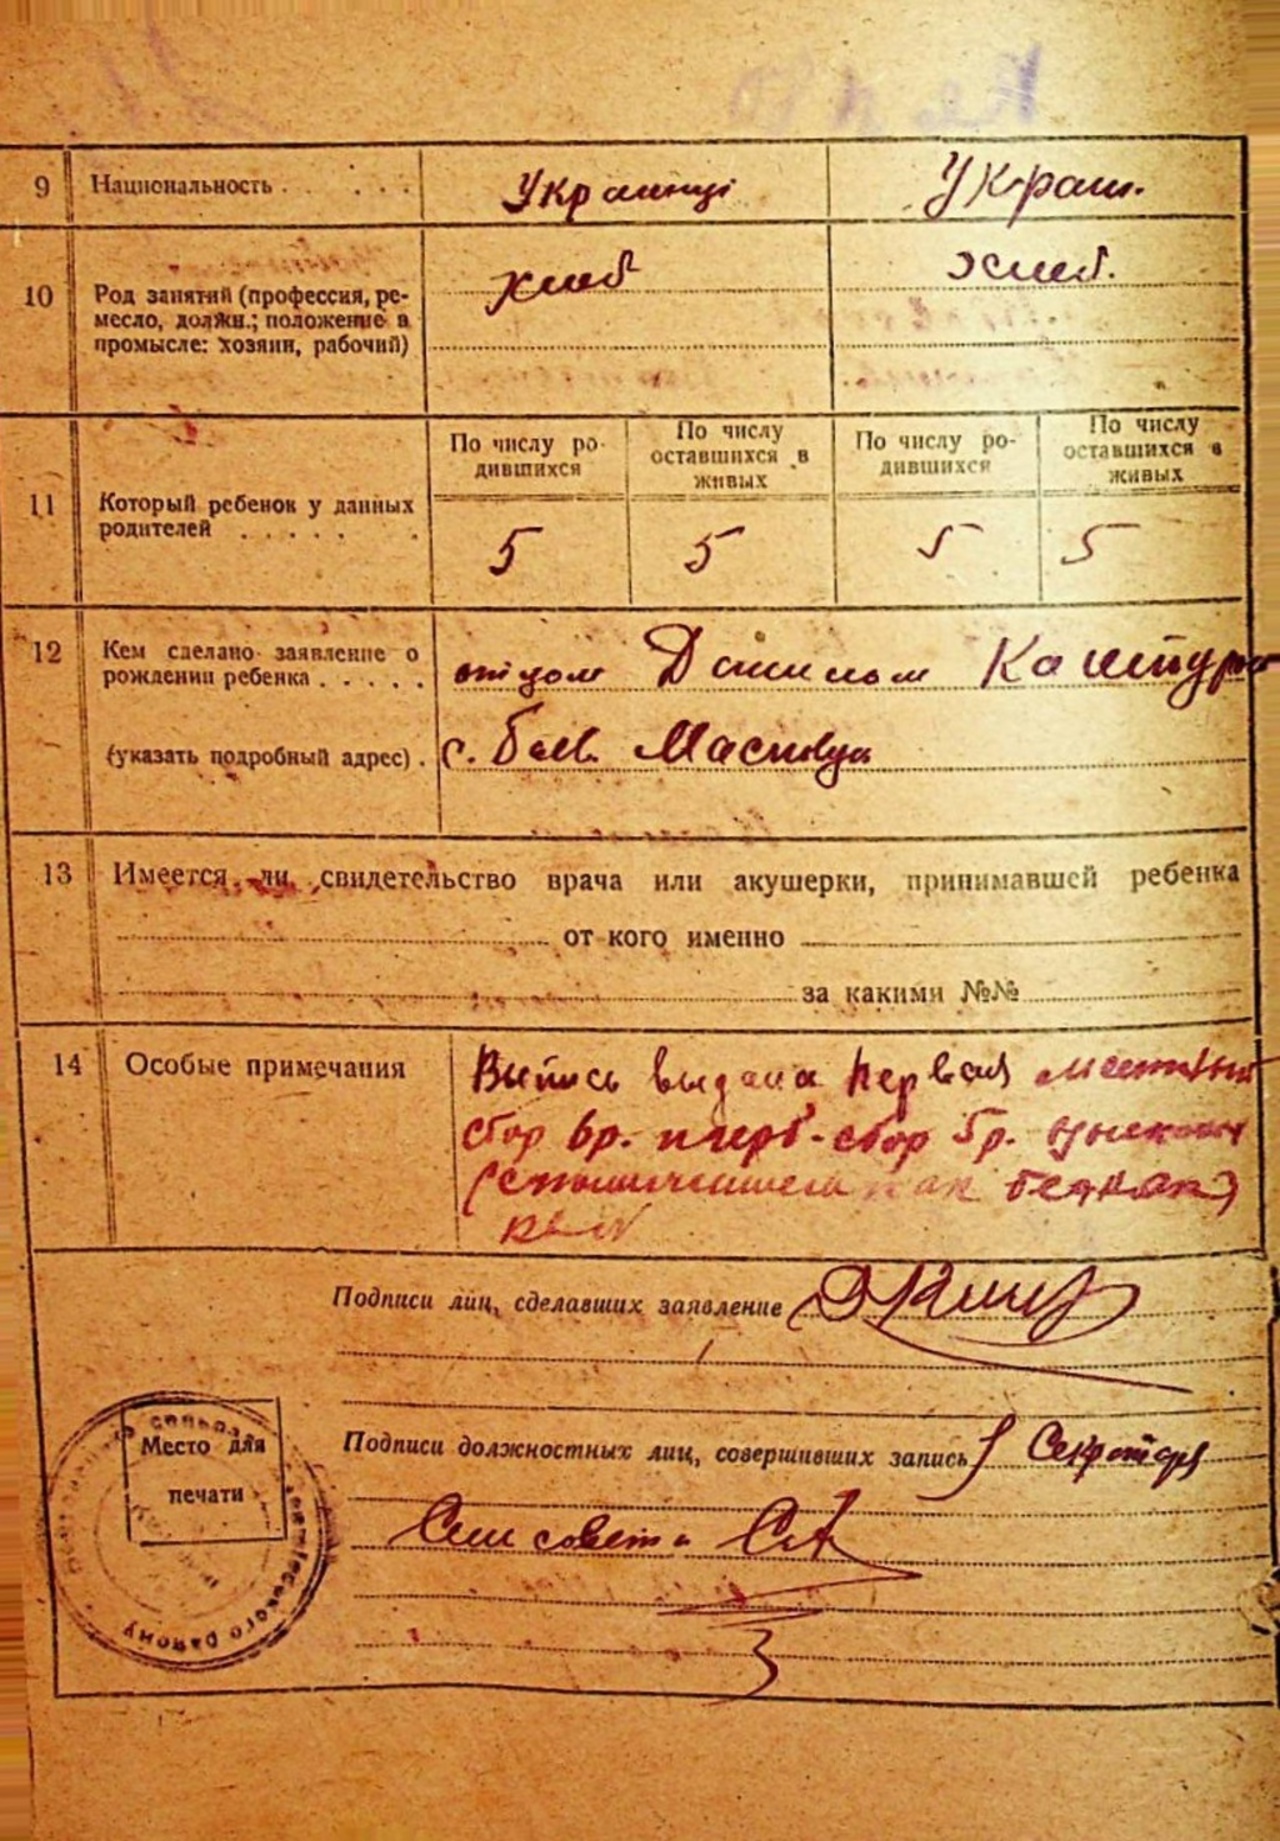 9 Национальность . . . . . Украинці Украин.
10 Род занятий (профессия, ре-
месло, должн.; положение в
промысле: хозяин, рабочий)
хлеб хлеб.
11 Который ребенок у данных
родителей . . . . . .
По числу ро-
дившихся
По числу
оставшихся в
живых
По числу ро-
дившихся
По числу
оставшихся в
живых
5 5 5 5
12 Кем сделано заявление о
рождении ребенка . . . . .
отцом Данилом
(указать подробный адрес) .
с.
13 Имеется ли свидетельство врача или акушерки, принимавшей ребенка
от кого именно
за какими №№
14 Особые примечания
Выпись выдана первая местный
сбор вр. сбор 5р.
как бедняк)
Подписи лиц, сделавших заявление
Подписи должностных лиц, совершивших запись Секретарь
Сельсовета
Место для
печати
району